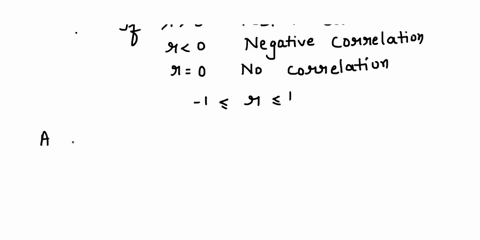 If
r < 0 Negative Correlation
r = 0 No correlation
-1 ≤ r ≤ 1
A .